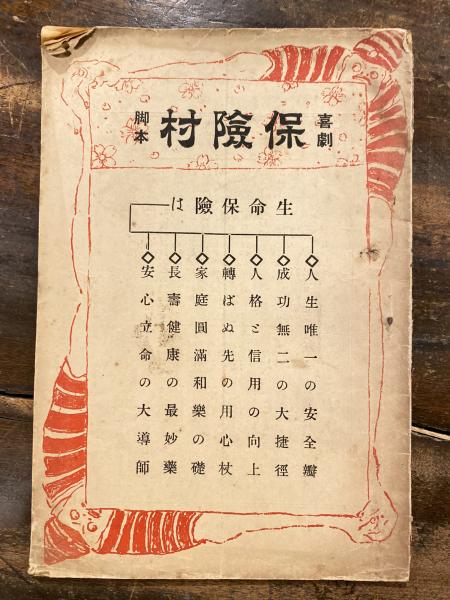 喜劇
保險村
脚本
生命保險は
人生唯一の安全瓣
成功無二の大捷徑
人格と信用の向上
轉ばぬ先の用心杖
家庭圓滿和樂の礎
長壽健康の最妙藥
安心立命の大導師